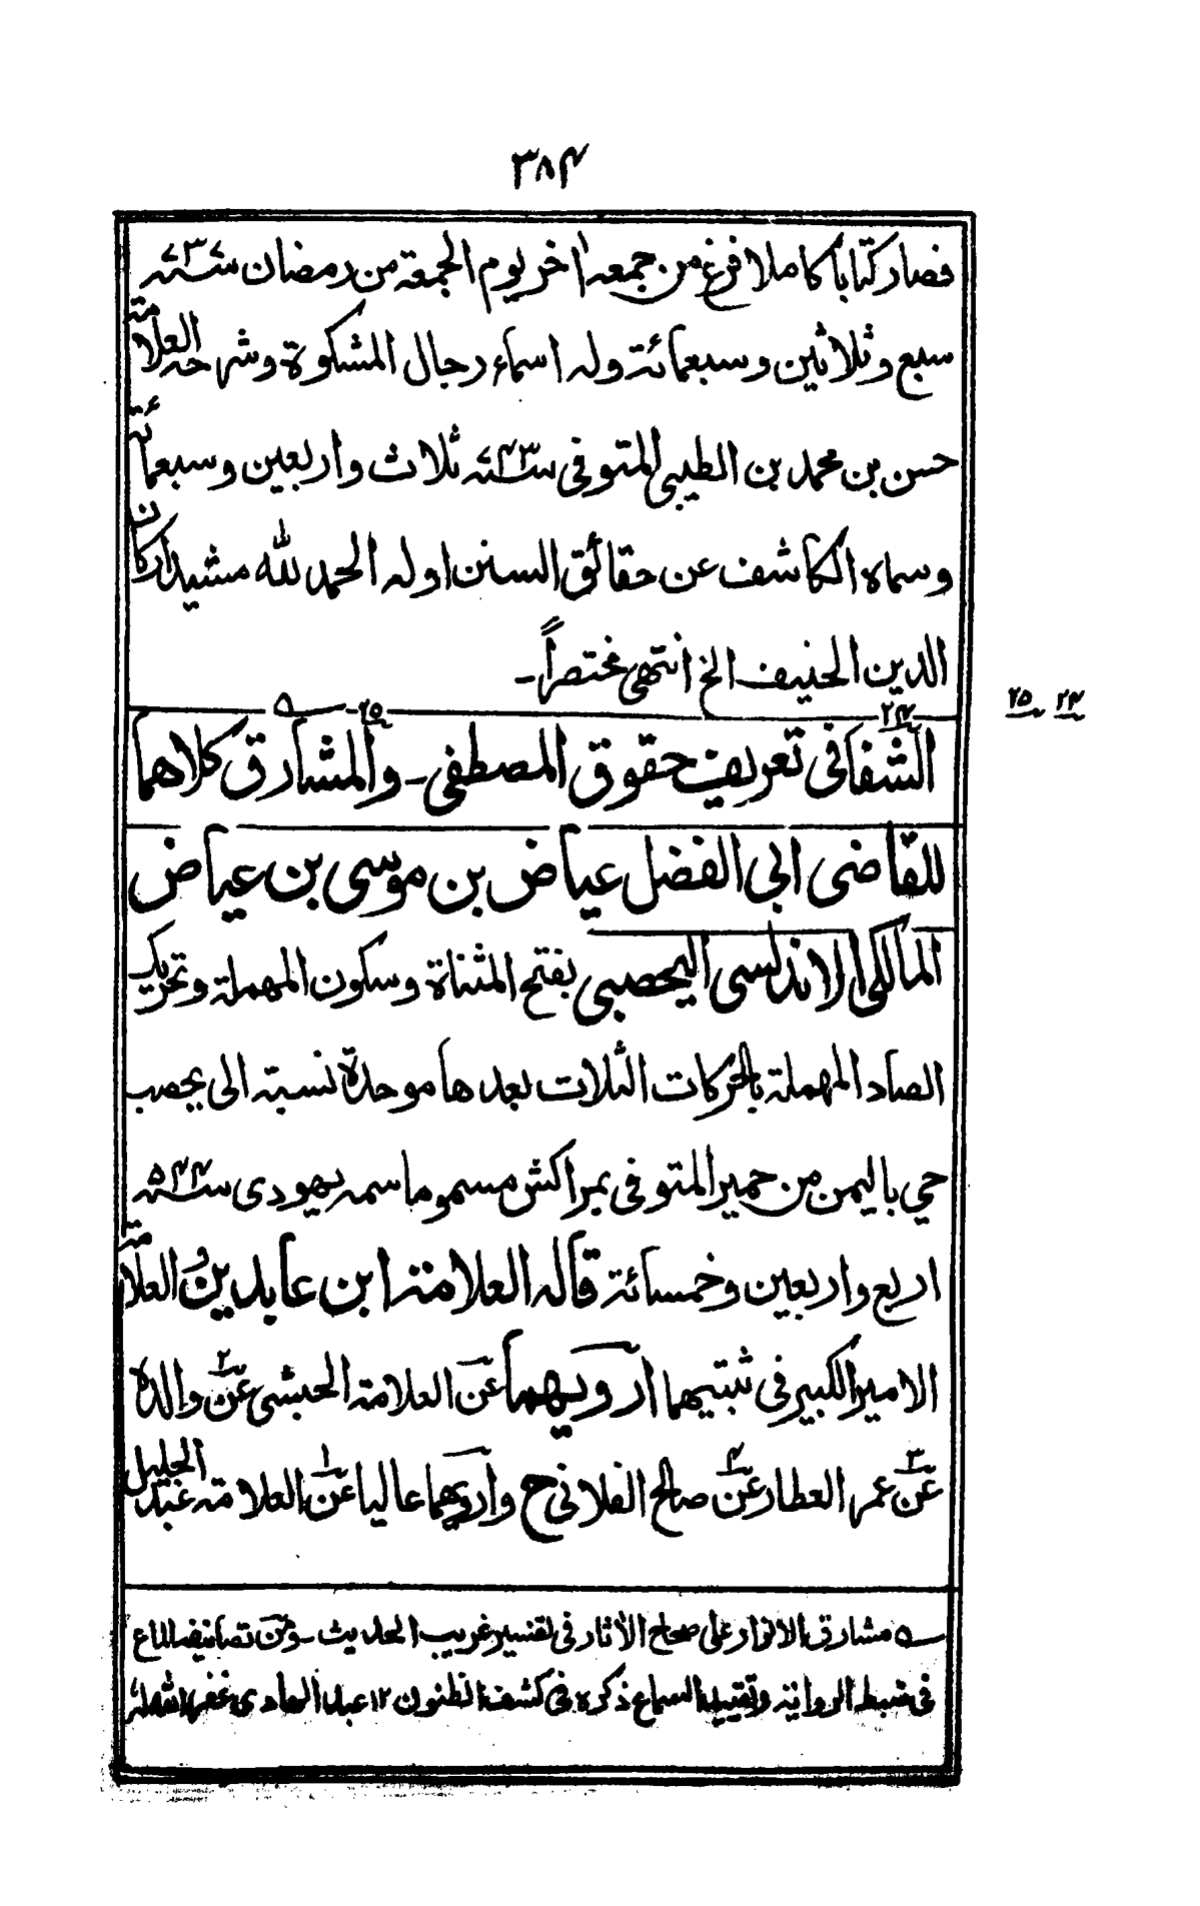 ٣٨٤
فصار كتابا كاملا فرغ من جمعه اٰخر يوم الجمعة من رمضان سنة ٧٣٧
سبع وثلاثين وسبعمائة وله اسماء رجال المشكوة وشرحه العلامة
حسن بن محمد بن الطيبى المتوفى سنة ٧٤٣ ثلاث واربعين وسبعمائة
وسماه الكاشف عن حقائق السنن اوله الحمد لله مشيد اركان
الدين الحنيف الخ انتهى مختصراً ـ
٢٤ ٢٥
٢٤ ٢٥ ۵
الشفا فى تعريف حقوق المصطفى ـ والمشارق كلاهما
للقاضى ابى الفضل عياض بن موسى بن عياض
المالكى الاندلسى اليحصبى بفتح المثناة وسكون المهملة وتحريك
الصاد المهملة بالحركات الثلاث بعدها موحدة نسبة الى يحصب
حي باليمن من حمير المتوفى بمراكش مسموما سمه يهودى سنة ٥٤٤
اربع واربعين وخمسائة قاله العلامة ابن عابدين والعلامة
الامير الكبير فى ثبتيهما ارويهما عن العلامة الحبشى عن٢ والده
عن٣ عمر العطار عن٤ صالح الفلانى ح وارويهما عاليا عن١ العلامة عبد الجليل
۵ مشارق الانوار على صحاح الاٰثار فى تفسير غريب الحديث ـ ومن تصانيفه الماع
فى ضبط الرواية وتقييد السماع ذكره فى كشف الظنون ١٢ عبد الهادى غفر الله له